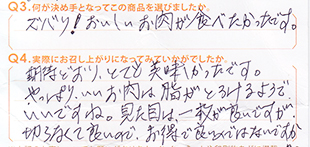 Q3.何が決め手となってこの商品を選びましたか。
ズバリ!おいしいお肉が食べたかったです。
Q4.実際にお召し上がりになってみていかがでしたか。
期待どおり、とても美味しかったです。
やっぱり、いいお肉は脂がとろけるようで
いいですね。見た目は一枚が良いですが、
切らなくて良いので、お得で良いのではないですか